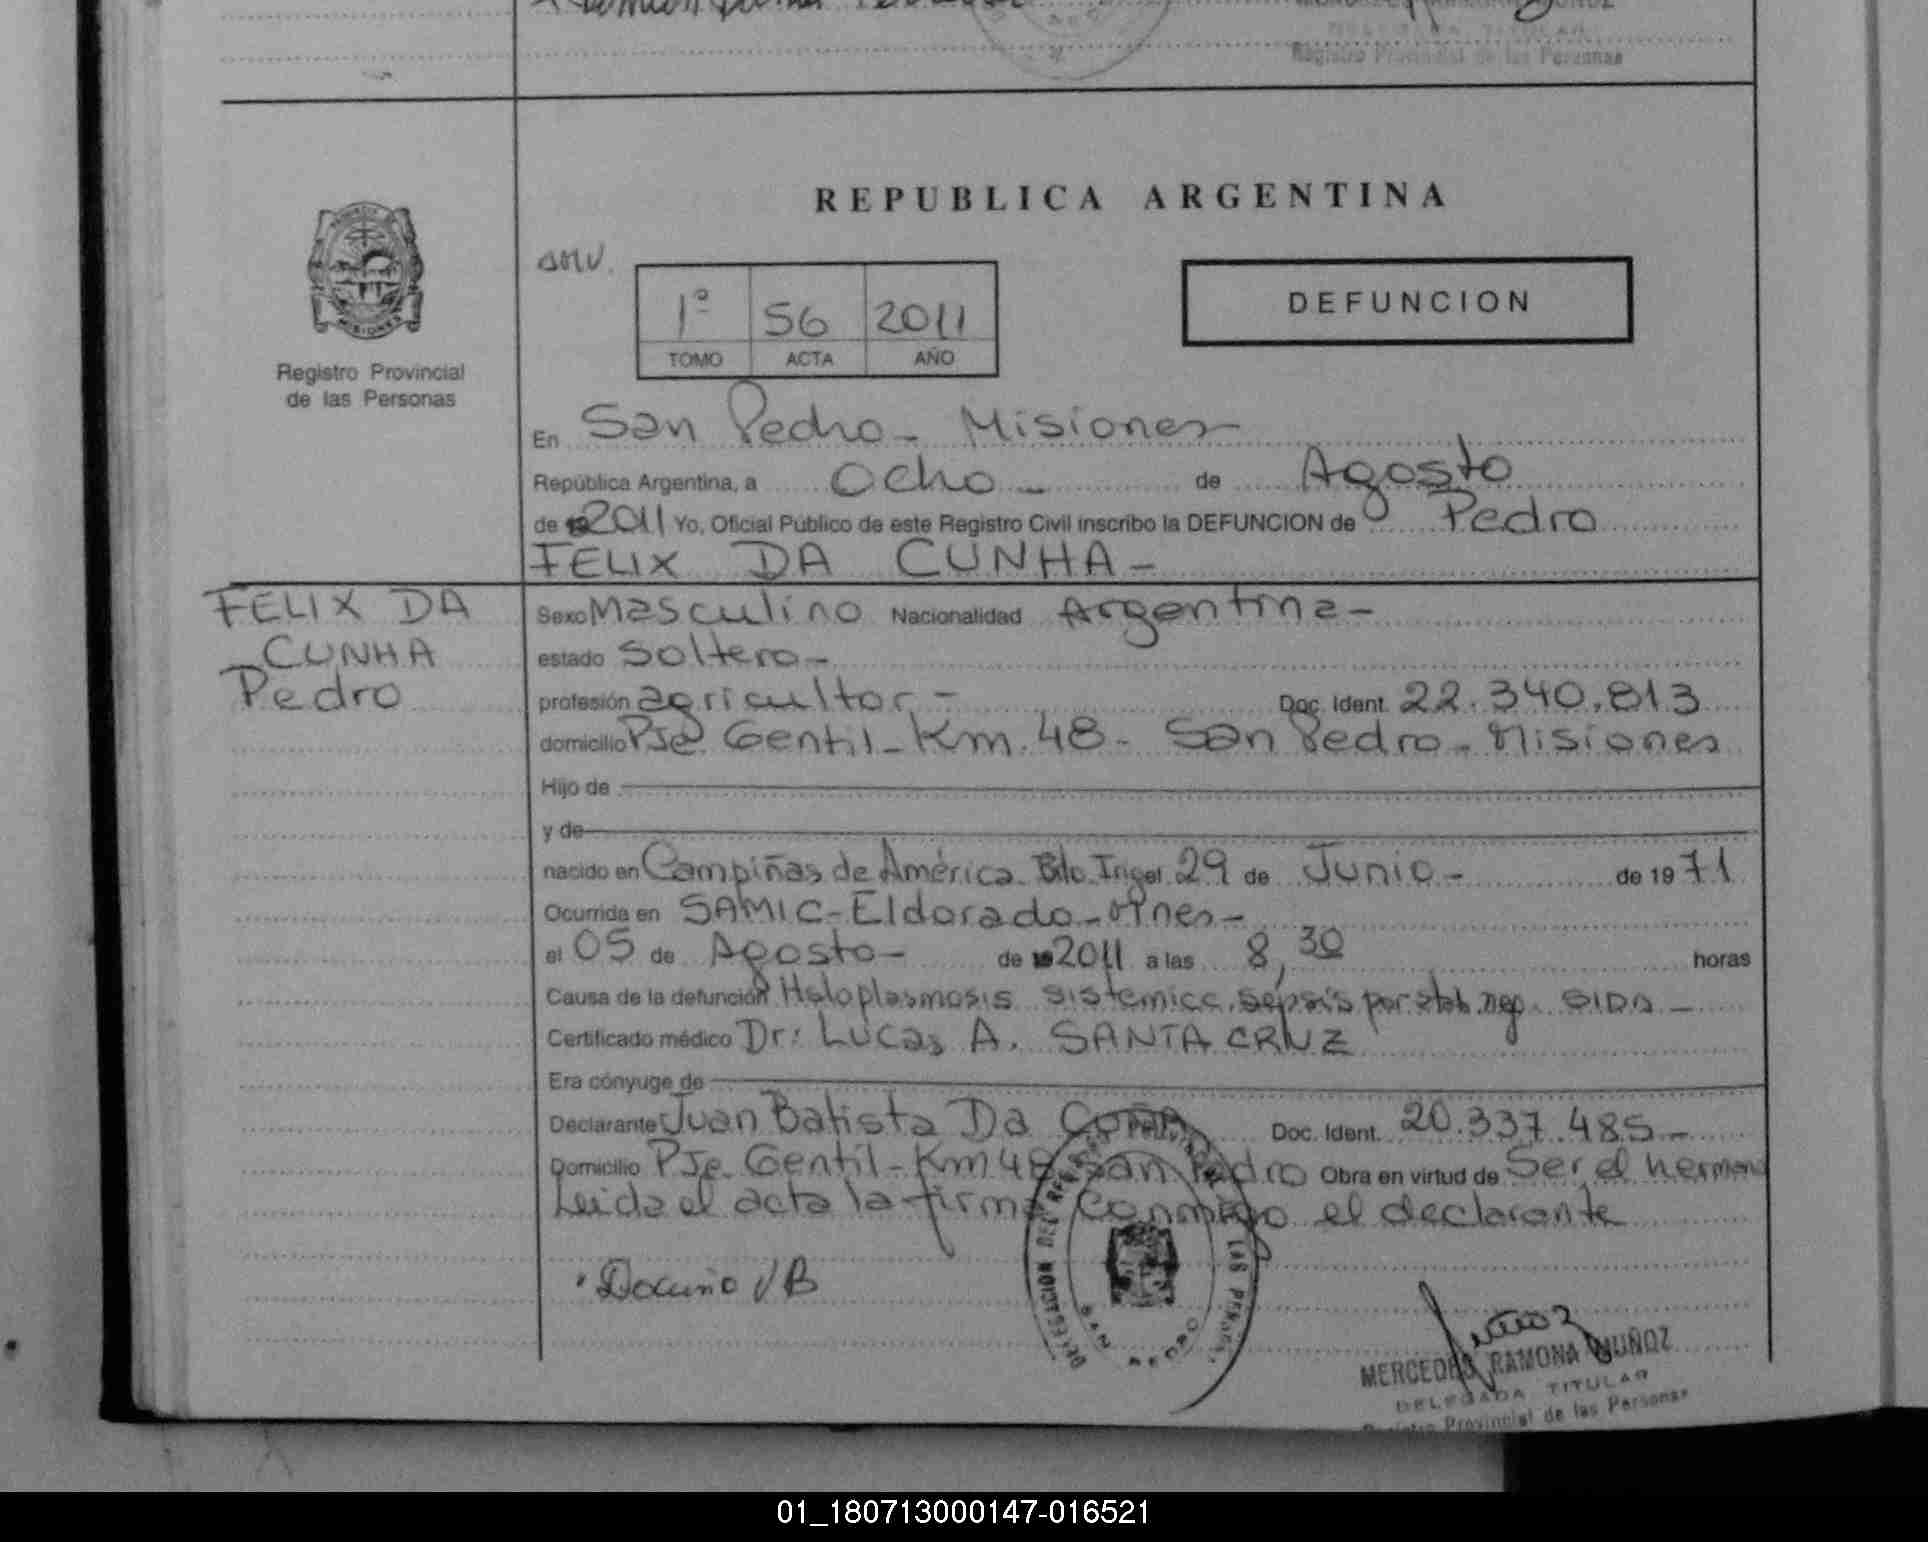 Registro Provincial de las Personas
REPUBLICA ARGENTINA
1º 56 2011
TOMO ACTA AÑO
DEFUNCION
MISIONES
Registro Provincial
de las Personas
En San Pedro - Misiones
República Argentina, a Ocho - de Agosto
de 2011 Yo, Oficial Público de este Registro Civil inscribo la DEFUNCION de Pedro
FELIX DA CUNHA -
FELIX DA
CUNHA
Pedro
Sexo Masculino Nacionalidad Argentina -
estado Soltero -
profesión agricultor - Doc. Ident. 22.340.813
domicilio Pje. Gentil - Km. 48 - San Pedro - Misiones
Hijo de
y de
nacido en Campiñas de América 29 de Junio - de 1971
Ocurrida en SAMIC - Eldorado - Mnes -
el 05 de Agosto - de 2011 a las 8,30 horas
Causa de la defunción Histoplasmosis sistemica. Sepsis por staf. neg. SIDA -
Certificado médico Dr: Lucas A. SANTA CRUZ
Era cónyuge de
Declarante Juan Batista Da Doc. Ident. 20.337.485 -
Domicilio Pje. Gentil - Km 48 San Pedro Obra en virtud de Ser el hermano
Leida el acta la firma conmigo el declarante
DELEGACION DEL REGISTRO PROVINCIAL DE LAS PERSONAS
SAN PEDRO
MERCEDES RAMONA MUÑOZ
DELEGADA TITULAR
Registro Provincial de las Personas
01_180713000147-016521